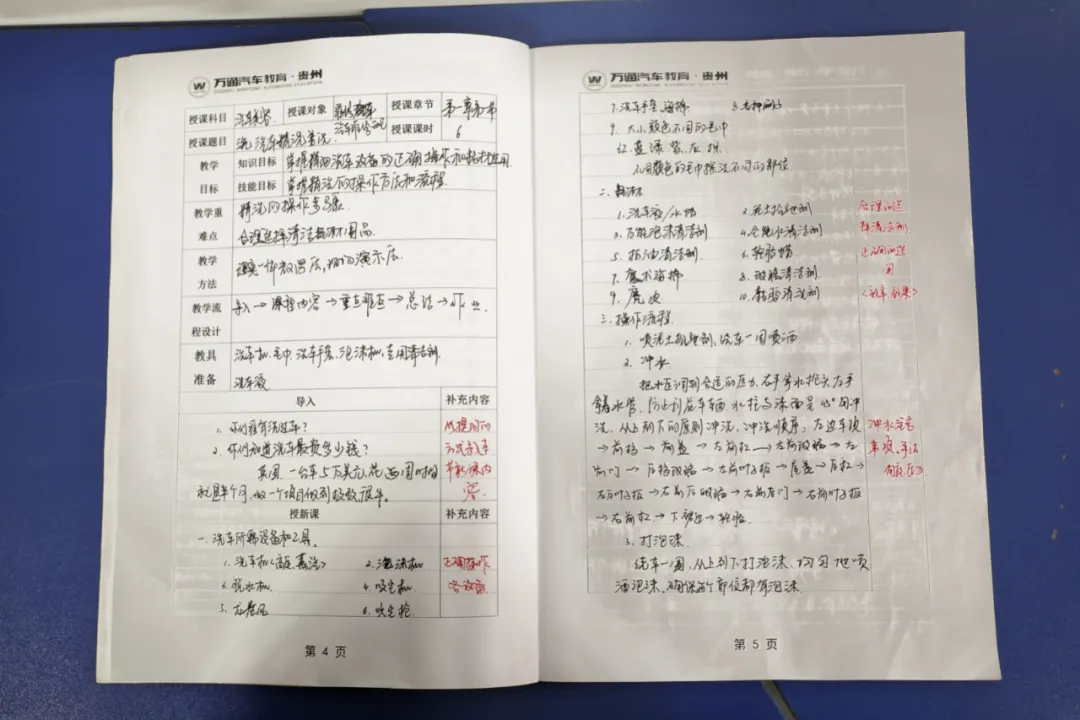 万通汽车教育·贵州
授课科目 汽车美容 授课对象 授课章节 第一章第一节
授课题目 汽车精洗 授课课时 6
教学目标 知识目标 掌握精细洗车设备的正确操作和耗材选用
技能目标 掌握精洗的操作方法和流程
教学重难点 精洗的操作步骤
合理选择清洁耗材用品
教学方法 理实一体教学法,现场演示法
教学流程设计 导入→课程内容→重点难点→总结→作业
教具准备 洗车机、毛巾、洗车手套、泡沫机、专用清洁剂
洗车液
导入 补充内容
1. 你们谁有洗过车?
2. 你们知道洗车最贵多少钱?
英国,一台车5万美元,花两周时间
就是半个月,做一个项目做到极致很牛。
从提问的
方式导入本
节新课内
容
授新课 补充内容
一、洗车所需设备和工具
1. 洗车机 2. 泡沫机
3. 脱水机 4. 吸尘机
5. 龙卷风 6. 吹尘枪
正确操作
各设备
第 4 页
万通汽车教育·贵州
7. 洗车手套、海绵 8.
9. 大小颜色不同的毛巾
红、蓝、绿、
不同颜色的毛巾擦洗不同的部位
二、耗材
1. 洗车液/水蜡 2.
3. 万能泡沫清洁剂 4. 全能水清洁剂
5. 柏油清洁剂 6. 轮胎蜡
7. 魔术海绵 8. 玻璃清洁剂
9. 麂皮 10. 清洁剂
合理的选
择清洁剂
正确的选
用
<效率、效果>
三、操作流程
1. 喷,绕车一周喷洒
2. 冲水
把水压调到合适的压力,右手拿水枪头左手
拿水管,防止刮花车辆,水柱与漆面呈45°角冲
洗,从上到下的原则冲洗,冲洗顺序:左边车顶
→前挡→前盖→左前杠→左前玻璃→左
前门→后挡玻璃→左前叶子板→尾盖→后杠→
右后叶子板→右前后玻璃→右前后门→右前叶子板
→右前杠→下裙边→轮胎
冲水注意
事项、手法
3. 打泡沫
绕车一周,从上到下打泡沫,均匀地喷
洒泡沫,确保每个部位都有泡沫
第 5 页